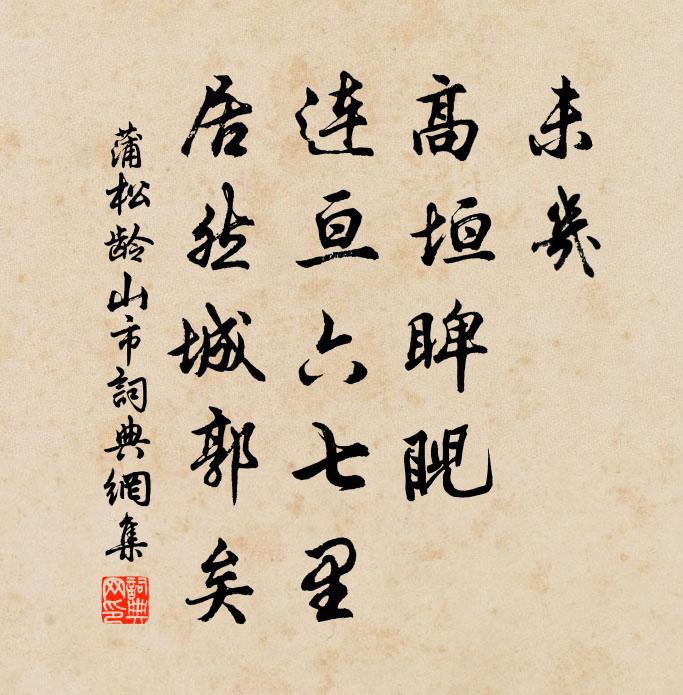 未幾
高垣睥睨
連亘六七里
居然城郭矣
蒲松龄山市詞典網集
詞典
网印